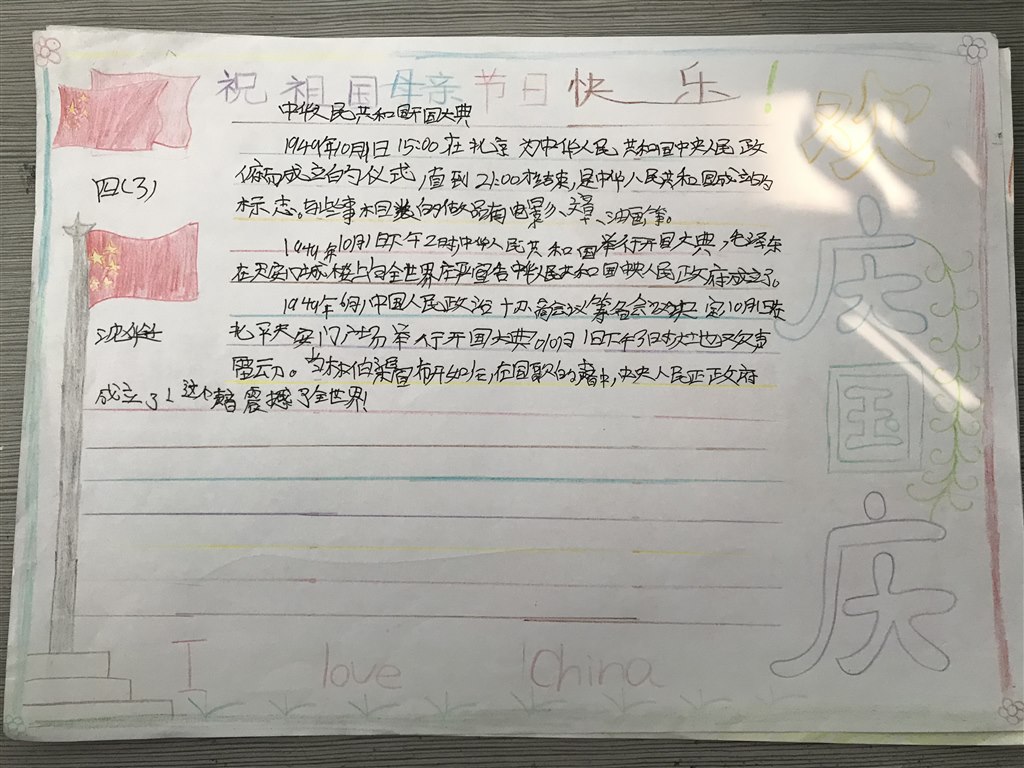 祝祖国母亲节日快乐!
中华人民共和国开国大典
四(3)
1949年10月1日15:00在北京为中华人民共和国中央人民政
府而成立的仪式,直到21:00才结束,是中华人民共和国成立的
标志。相类的作品有电影、文章、油画等。
1949年10月1日下午2时中华人民共和国举行开国大典,毛泽东
在天安门城楼上向全世界庄严宣告中华人民共和国中央人民政府成立了。
1949年6月中国人民政治
北平天安门广场举行开国大典。10月1日下午3
在国歌的 中,中央人民政府
成立了!这个 震撼了全世界!
欢
庆
国
庆
I love China